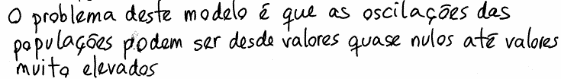 O problema deste modelo é que as oscilações das
populações podem ser desde valores quase nulos até valores
muito elevados